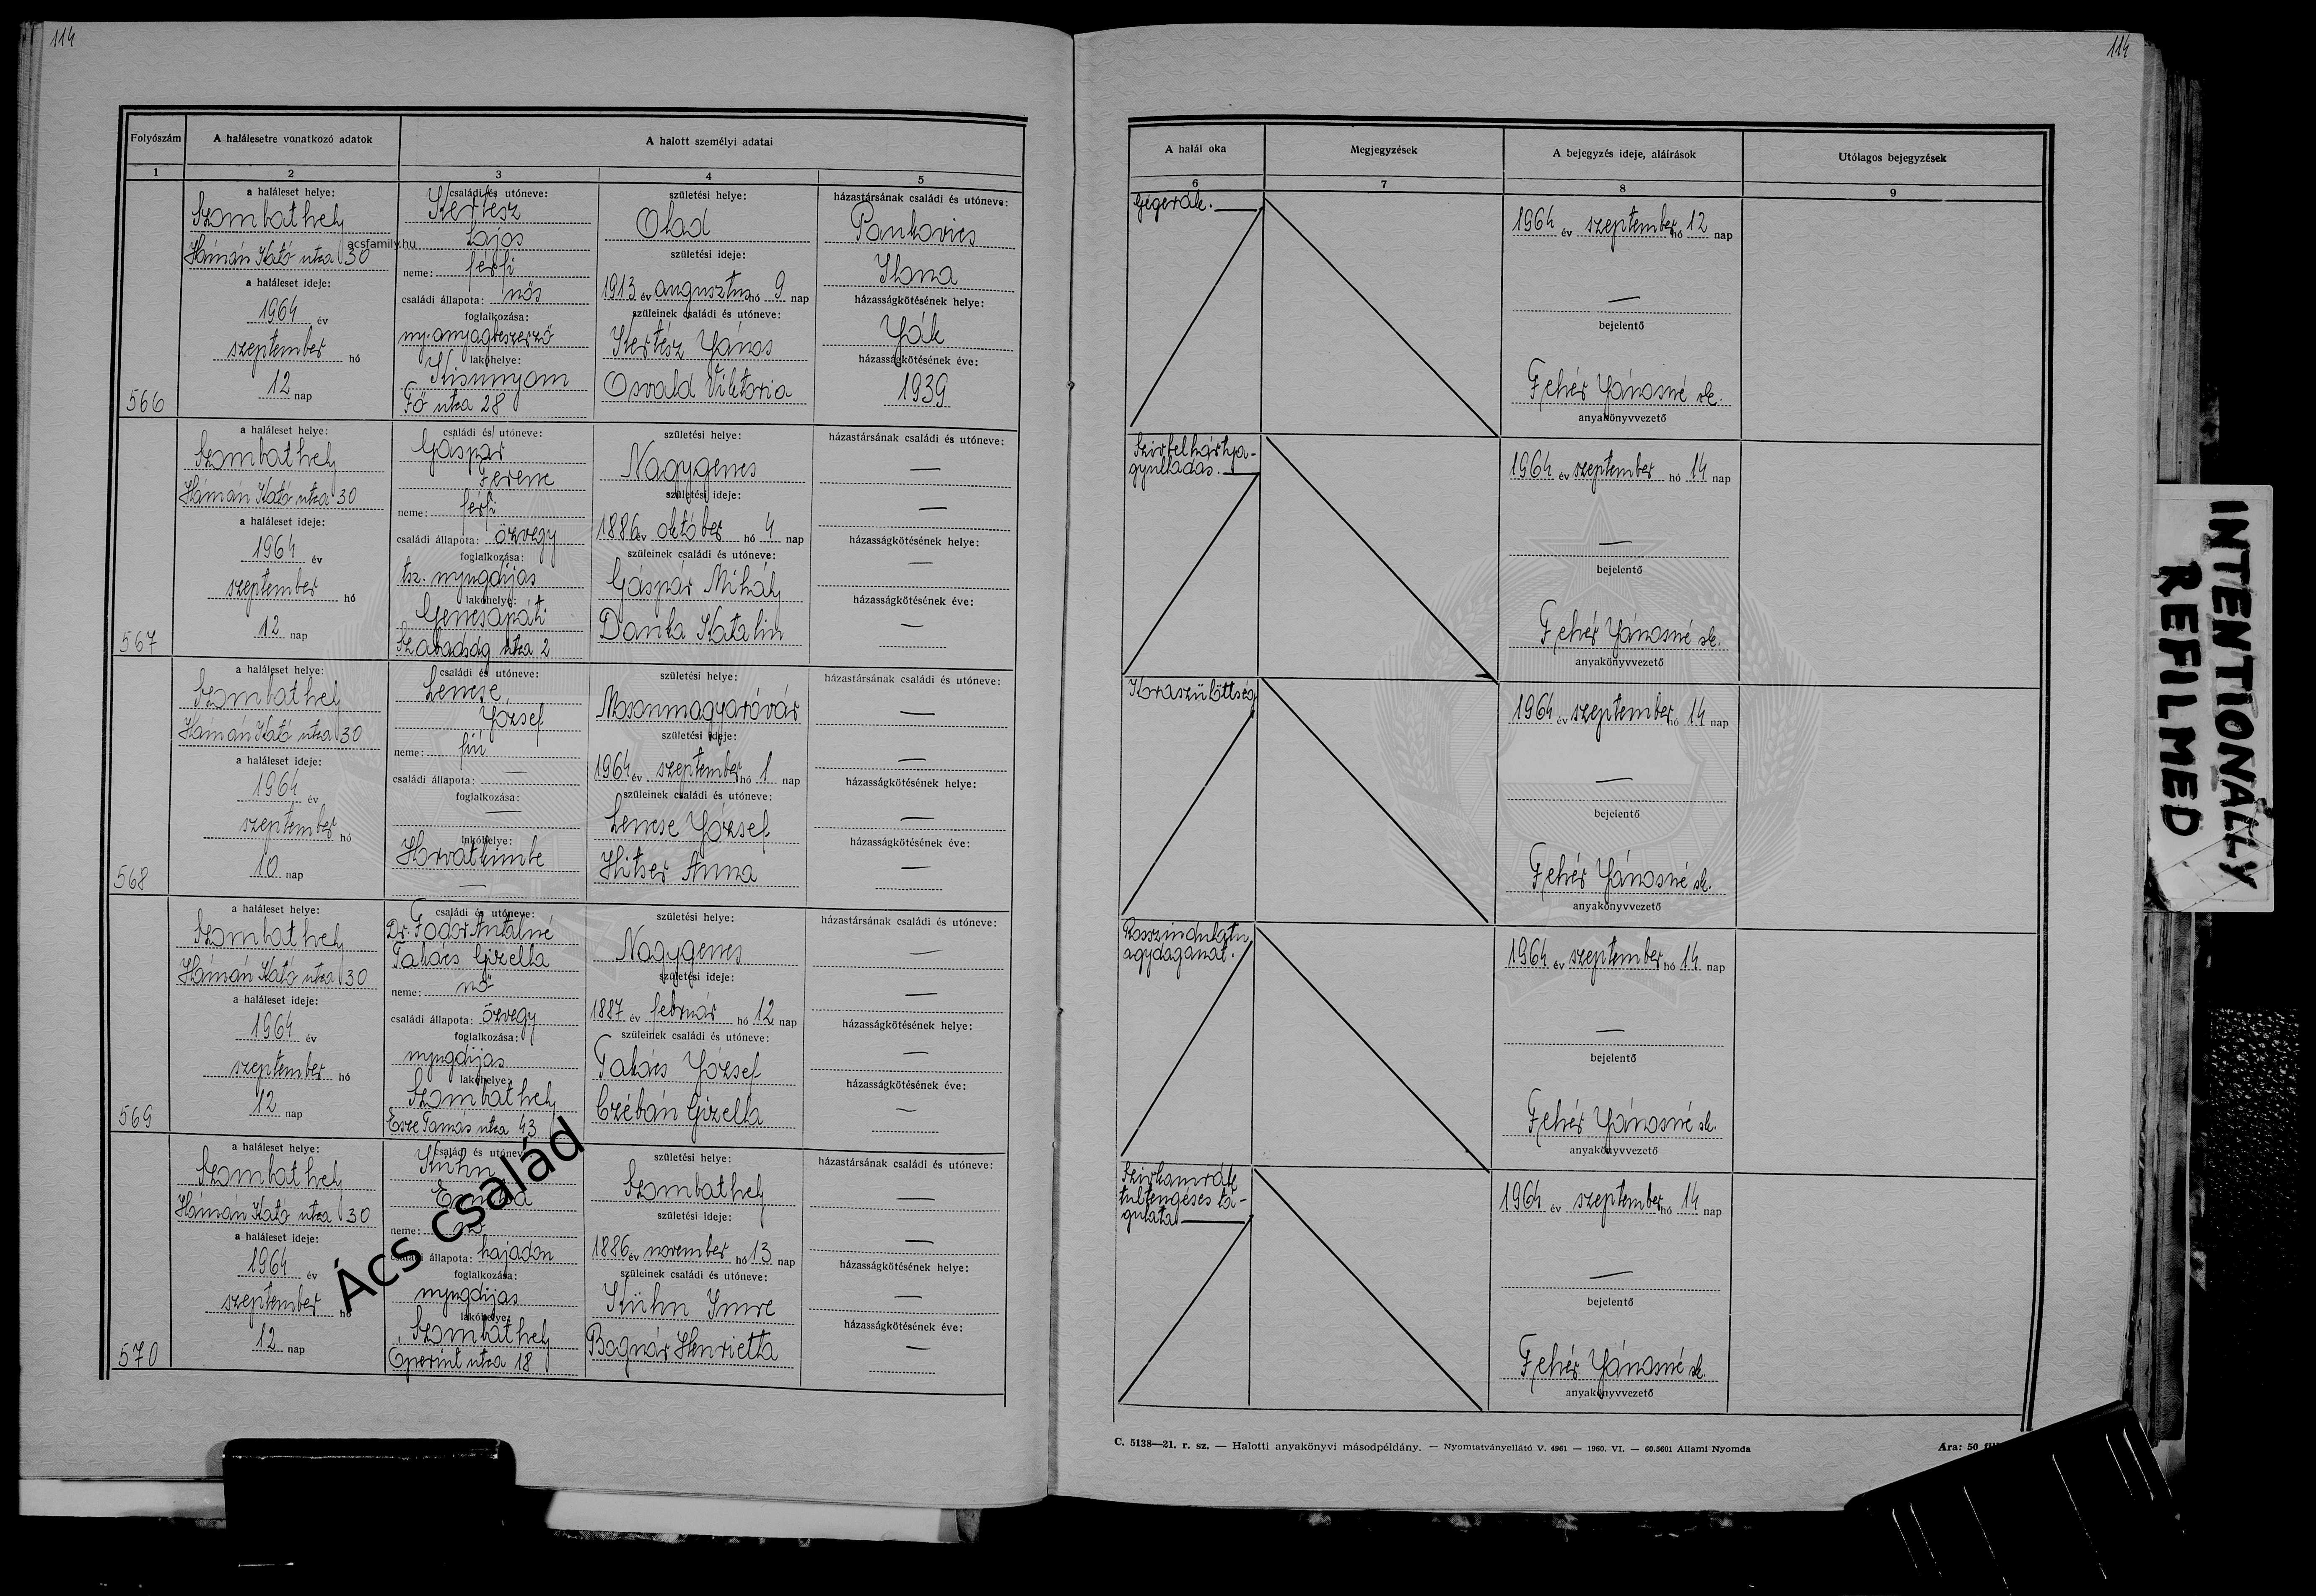 114
114
Folyószám
A halálesetre vonatkozó adatok
A halott személyi adatai
1
2
3
4
5
566
a haláleset helye:
Szombathely
Hámán Kató utca 30
a haláleset ideje:
1964 év
szeptember hó
12 nap
családi és utóneve:
Kertész
Lajos
neme: férfi
családi állapota: nős
foglalkozása:
ny. anyagbeszerző
lakóhelye:
Kisunyom
Fő utca 28
születési helye:
Olad
születési ideje:
1913 év augusztus hó 9 nap
szüleinek családi és utóneve:
Kertész János
Osvald Viktória
házastársának családi és utóneve:
Pankovics
Ilona
házasságkötésének helye:
Ják
házasságkötésének éve:
1939
567
a haláleset helye:
Szombathely
Hámán Kató utca 30
a haláleset ideje:
1964 év
szeptember hó
12 nap
családi és utóneve:
Gáspár
Ferenc
neme: férfi
családi állapota: özvegy
foglalkozása:
tsz. nyugdíjas
lakóhelye:
Gencsapáti
Szabadság utca 2
születési helye:
Nagygencs
születési ideje:
1886 év október hó 4 nap
szüleinek családi és utóneve:
Gáspár Mihály
Danka Katalin
házastársának családi és utóneve:
—
—
házasságkötésének helye:
—
házasságkötésének éve:
—
568
a haláleset helye:
Szombathely
Hámán Kató utca 30
a haláleset ideje:
1964 év
szeptember hó
10 nap
családi és utóneve:
Lencse
József
neme: fiú
családi állapota: —
foglalkozása:
—
lakóhelye:
Horvátkimle
—
születési helye:
Mosonmagyaróvár
születési ideje:
1964 év szeptember hó 1 nap
szüleinek családi és utóneve:
Lencse József
Hitser Anna
házastársának családi és utóneve:
—
—
házasságkötésének helye:
—
házasságkötésének éve:
—
569
a haláleset helye:
Szombathely
Hámán Kató utca 30
a haláleset ideje:
1964 év
szeptember hó
12 nap
családi és utóneve:
Dr. Fodor Antalné
Takács Gizella
neme: nő
családi állapota: özvegy
foglalkozása:
nyugdíjas
lakóhelye:
Szombathely
Esze Tamás utca 43
születési helye:
Nagygencs
születési ideje:
1887 év február hó 12 nap
szüleinek családi és utóneve:
Takács József
Czébán Gizella
házastársának családi és utóneve:
—
—
házasságkötésének helye:
—
házasságkötésének éve:
—
570
a haláleset helye:
Szombathely
Hámán Kató utca 30
a haláleset ideje:
1964 év
szeptember hó
12 nap
családi és utóneve:
Kühn
neme: nő
családi állapota: hajadon
foglalkozása:
nyugdíjas
lakóhelye:
Szombathely
Óperint utca 18
születési helye:
Szombathely
születési ideje:
1886 év november hó 13 nap
szüleinek családi és utóneve:
Kühn Imre
Bognár Henrietta
házastársának családi és utóneve:
—
—
házasságkötésének helye:
—
házasságkötésének éve:
—
acsfamily.hu
Ács család
A halál oka
Megjegyzések
A bejegyzés ideje, aláírások
Utólagos bejegyzések
6
7
8
9
Gégerák. —
1964 év szeptember hó 12 nap
—
bejelentő
Fehér Jánosné sk.
anyakönyvvezető
Szívbelhártya-
gyulladás. —
1964 év szeptember hó 14 nap
—
bejelentő
Fehér Jánosné sk.
anyakönyvvezető
Koraszülöttség
1964 év szeptember hó 14 nap
—
bejelentő
Fehér Jánosné sk.
anyakönyvvezető
Rosszindulatu
agydaganat.
1964 év szeptember hó 14 nap
—
bejelentő
Fehér Jánosné sk.
anyakönyvvezető
Szívkamrák
túltengéses tá-
gulata —
1964 év szeptember hó 14 nap
—
bejelentő
Fehér Jánosné sk.
anyakönyvvezető
C. 5138—21. r. sz. — Halotti anyakönyvi másodpéldány. — Nyomtatványellátó V. 4961 — 1960. VI. — 60.5601 Állami Nyomda
Ára: 50
INTENTIONALLY
REFILMED